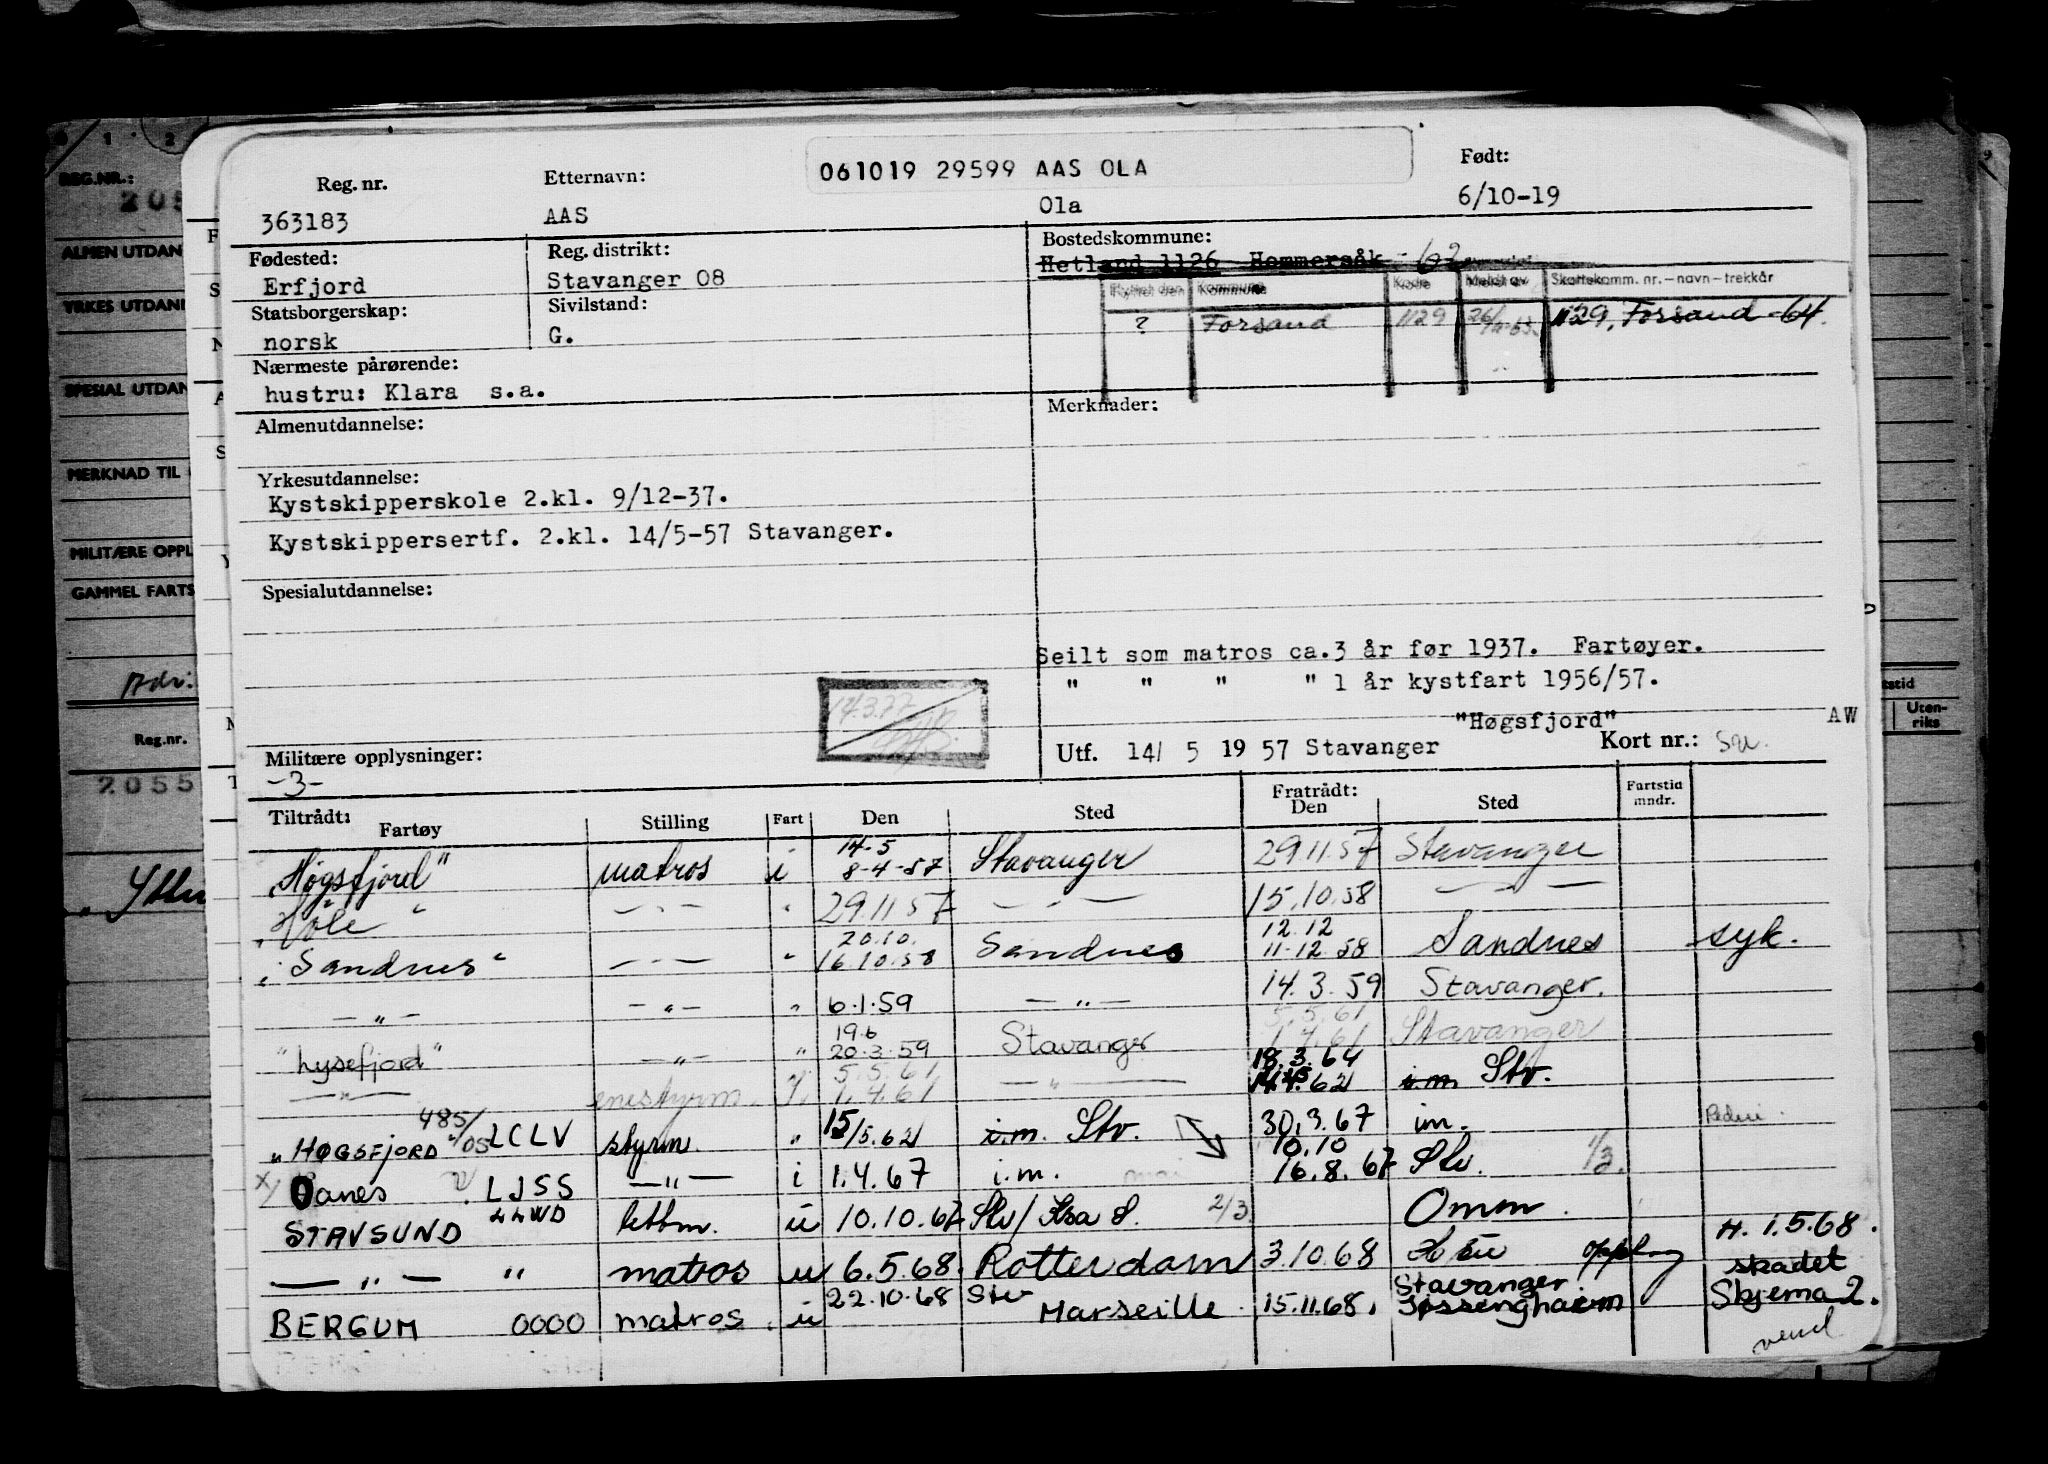 061019 29599 AAS OLA
Reg. nr. Etternavn: Født:
363183 AAS Ola 6/10-19
Fødested: Reg. distrikt: Bostedskommune:
Erfjord Stavanger 08 Hetland 1126 Hommersåk - 62
Statsborgerskap: Sivilstand:
norsk G.
Flyttet den Kommune Kode Meldt av Skattekomm. nr. – navn – trekkår
? Forsand 1129 1129, Forsand -64.
Nærmeste pårørende:
hustru: Klara s.a.
Almenutdannelse: Merknader:
Yrkesutdannelse:
Kystskipperskole 2.kl. 9/12-37.
Kystskippersertf. 2.kl. 14/5-57 Stavanger.
Spesialutdannelse:
Seilt som matros ca.3 år før 1937. Fartøyer.
" " " " 1 år kystfart 1956/57.
"Høgsfjord" AW
14.3.77
Militære opplysninger: Utf. 14/ 5 19 57 Stavanger Kort nr.:
-3-
Tiltrådt: Fratrådt: Fartstid mndr.
Fartøy Stilling Fart Den Sted Den Sted
14-5
"Høgsfjord" matros i 8-4-57 Stavanger 29.11.57 Stavanger
"Høle" — " — " 29.11.57 — " — 15.10.58 — " —
20.10. 12.12
"Sandnes" — " — " 16.10.58 Sandnes 11-12.58 Sandnes syk.
— " — — " — " 6.1.59 — " — 14.3.59 Stavanger.
19.6 5.5.61
"Lysefjord" — " — " 20.3.59 Stavanger 1.4.61 Stavanger
5.5.61 18.3.64
— " — enestyrm. 1.4.61 — " — i.m. Stv.
485/05
"HØGSFJORD" LCLV styrm. " 15/5.62 i.m. Stv. 30.3.67 im.
10.10
Oanes LJSS — " — i 1.4.67 i.m. 16.8.67 Stv. 1/3.
STAVSUND LLWD lettm. u 10.10.67 Stv/ 2/3. Omm. H. 1.5.68.
— " — " matros u 6.5.68. Rotterdam 3.10.68 skadet
22.10.68 Stv Stavanger
BERGUM 0000 matros u Marseille 15.11.68. Jøssinghavn Skjema 2.
vend
REG.NR.:
205
ALMEN UTDAN
YRKES UTDAN
SPESIAL UTDAN
MERKNAD TIL
MILITÆRE OPPL
GAMMEL FARTS
Adr:
Reg.nr.
2055
Uten-
riks